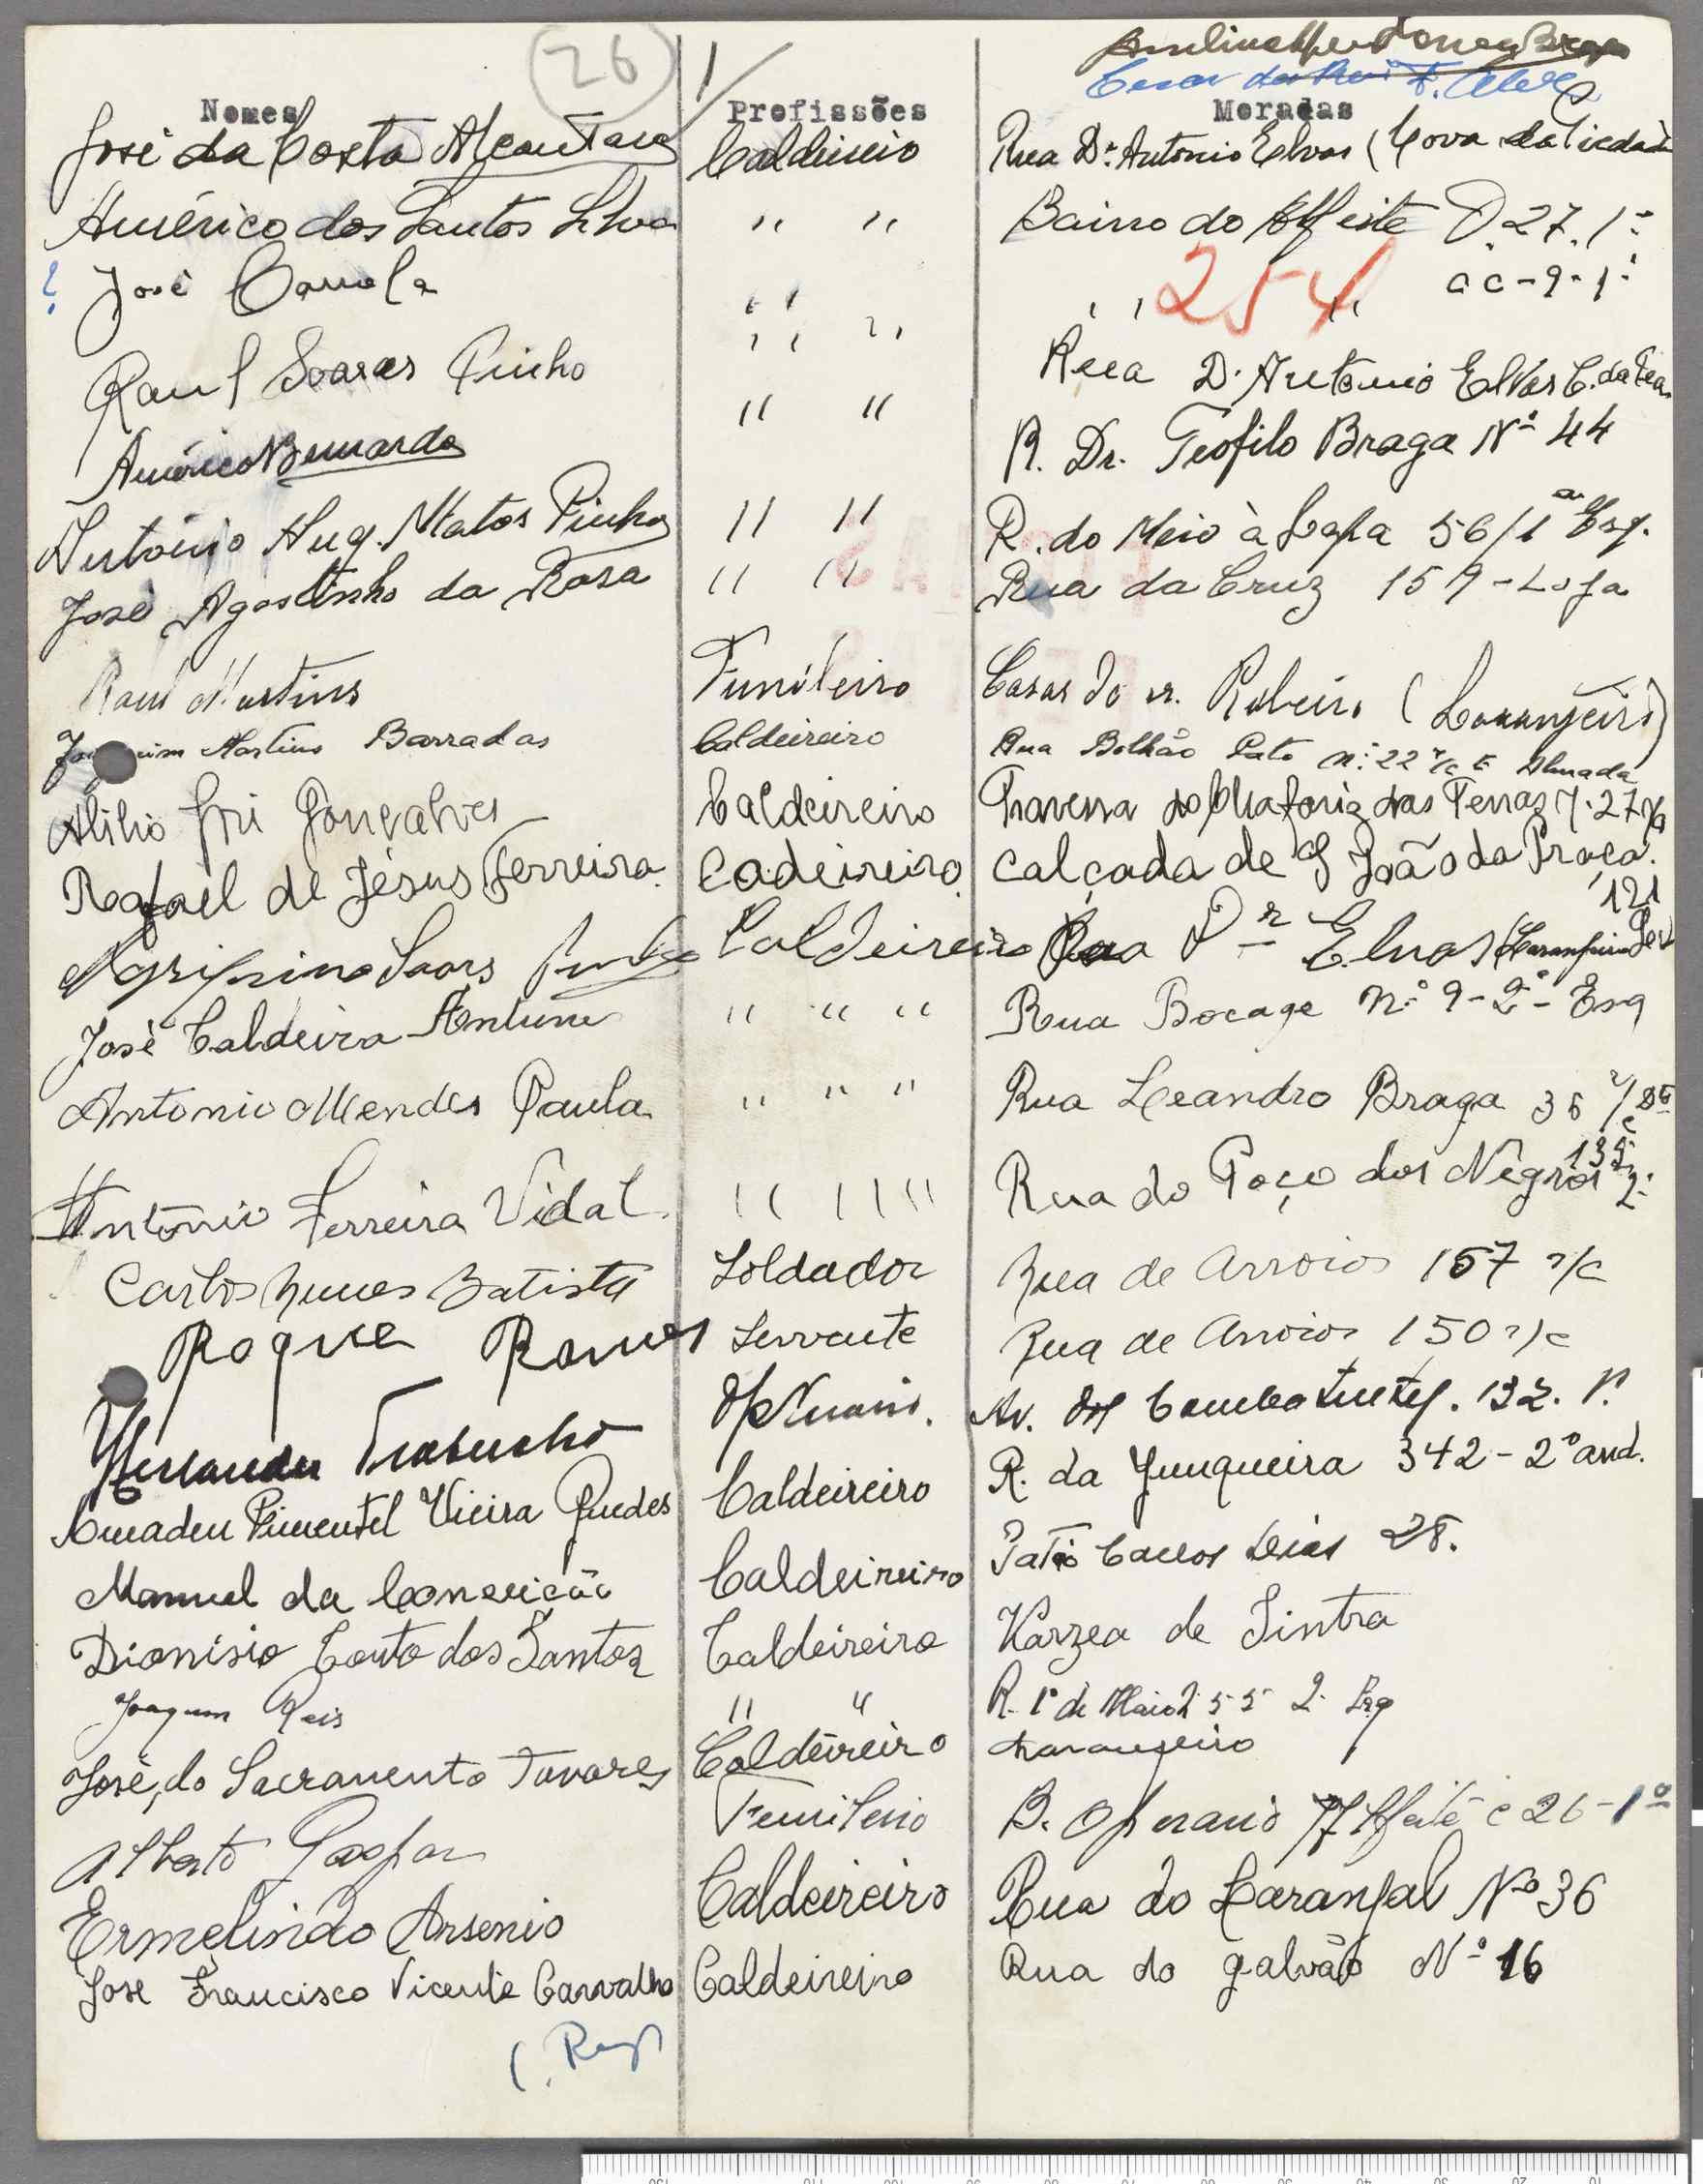 26 1
Nomes Profissões Moradas
José da Costa Alcantara Caldireiro Rua Dr. Antonio Elvas (Cova da Piedade
Américo dos Santos Silva " " Bairro do Alfeite D.27.1º
? José " " " " 254 cc-9-1º
Raul Soares Pinho " " Rua D. Antonio Elvas C. da Pia
Américo Bernardo " " R. Dr. Teofilo Braga Nº 44
António Aug. Matos Pinho " " R. do Meio à Lapa 56/1º Esq.
José Agostinho da Rosa " " Rua da Cruz 159-Loja
Raul Martins Funileiro Casas do sr. Ribeiro (Laranjeiro)
Martins Barradas Caldeireiro Rua Bolhão Pato nº 22 r/c E Almada
Gonçalves Caldeireiro Travessa do Chafariz das Terras 27
Rafael de Jesus Ferreira Cadeireiro Calçada de S João da Praça. 121
Agripino Soares Caldeireiro Rua Dr E. Elvas (Laranjeiro
José Caldeira Antunes " " " Rua Bocage nº 9-2º-Esq
Antonio Mendes Paula " " " Rua Leandro Braga 36 r/c Dto
António Ferreira Vidal " " " Rua do Poço dos Negros 135 2º
Carlos Nunes Batista Soldador Rua de Arroios 157 r/c
Roque Ramos Servente Rua de Arroios 150 r/c
Trabucho Av. dos Combatentes. 132. 1º
Amadeu Pimentel Vieira Guedes Caldeireiro R. da Junqueira 342-2º and.
Manuel da Conceição Caldeireiro Patio Carlos Dias 28.
Dionísio Couto dos Santos Caldeireiro Varzea de Sintra
Joaquim Reis " " R. 1º de Maio 55 2º Esq
José do Sacramento Tavares Caldeireiro Laranjeiro
Alberto Gaspar Funileiro B. Operario Alfeite C 26-1º
Ermelindo Arsenio Caldeireiro Rua do Laranjal Nº 36
José Francisco Vicente Carvalho Caldeireiro Rua do galvão Nº 16